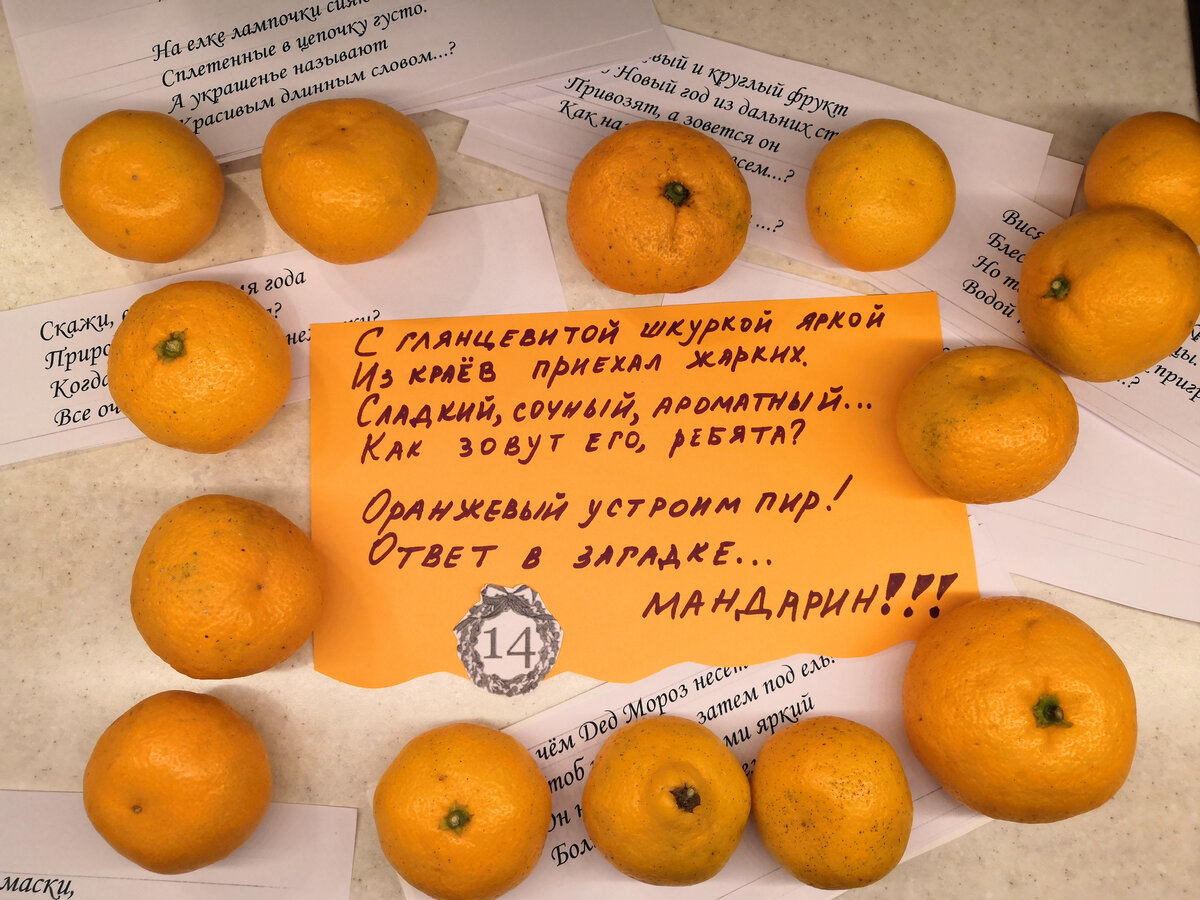 На елке лампочки
Сплетенные в цепочку густо.
А украшенье называют
Красивым длинным словом...?
и круглый фрукт
Новый год из дальних
Привозят, а зовется он
Как
...?
Скажи, года
Когда
Все
Вися
Но
Водой
...?
С глянцевитой шкуркой яркой
Из краёв приехал жарких.
Сладкий, сочный, ароматный...
Как зовут его, ребята?
Оранжевый устроим пир!
Ответ в загадке...
МАНДАРИН!!!
14
чём Дед Мороз
затем под ель.
яркий
маски,